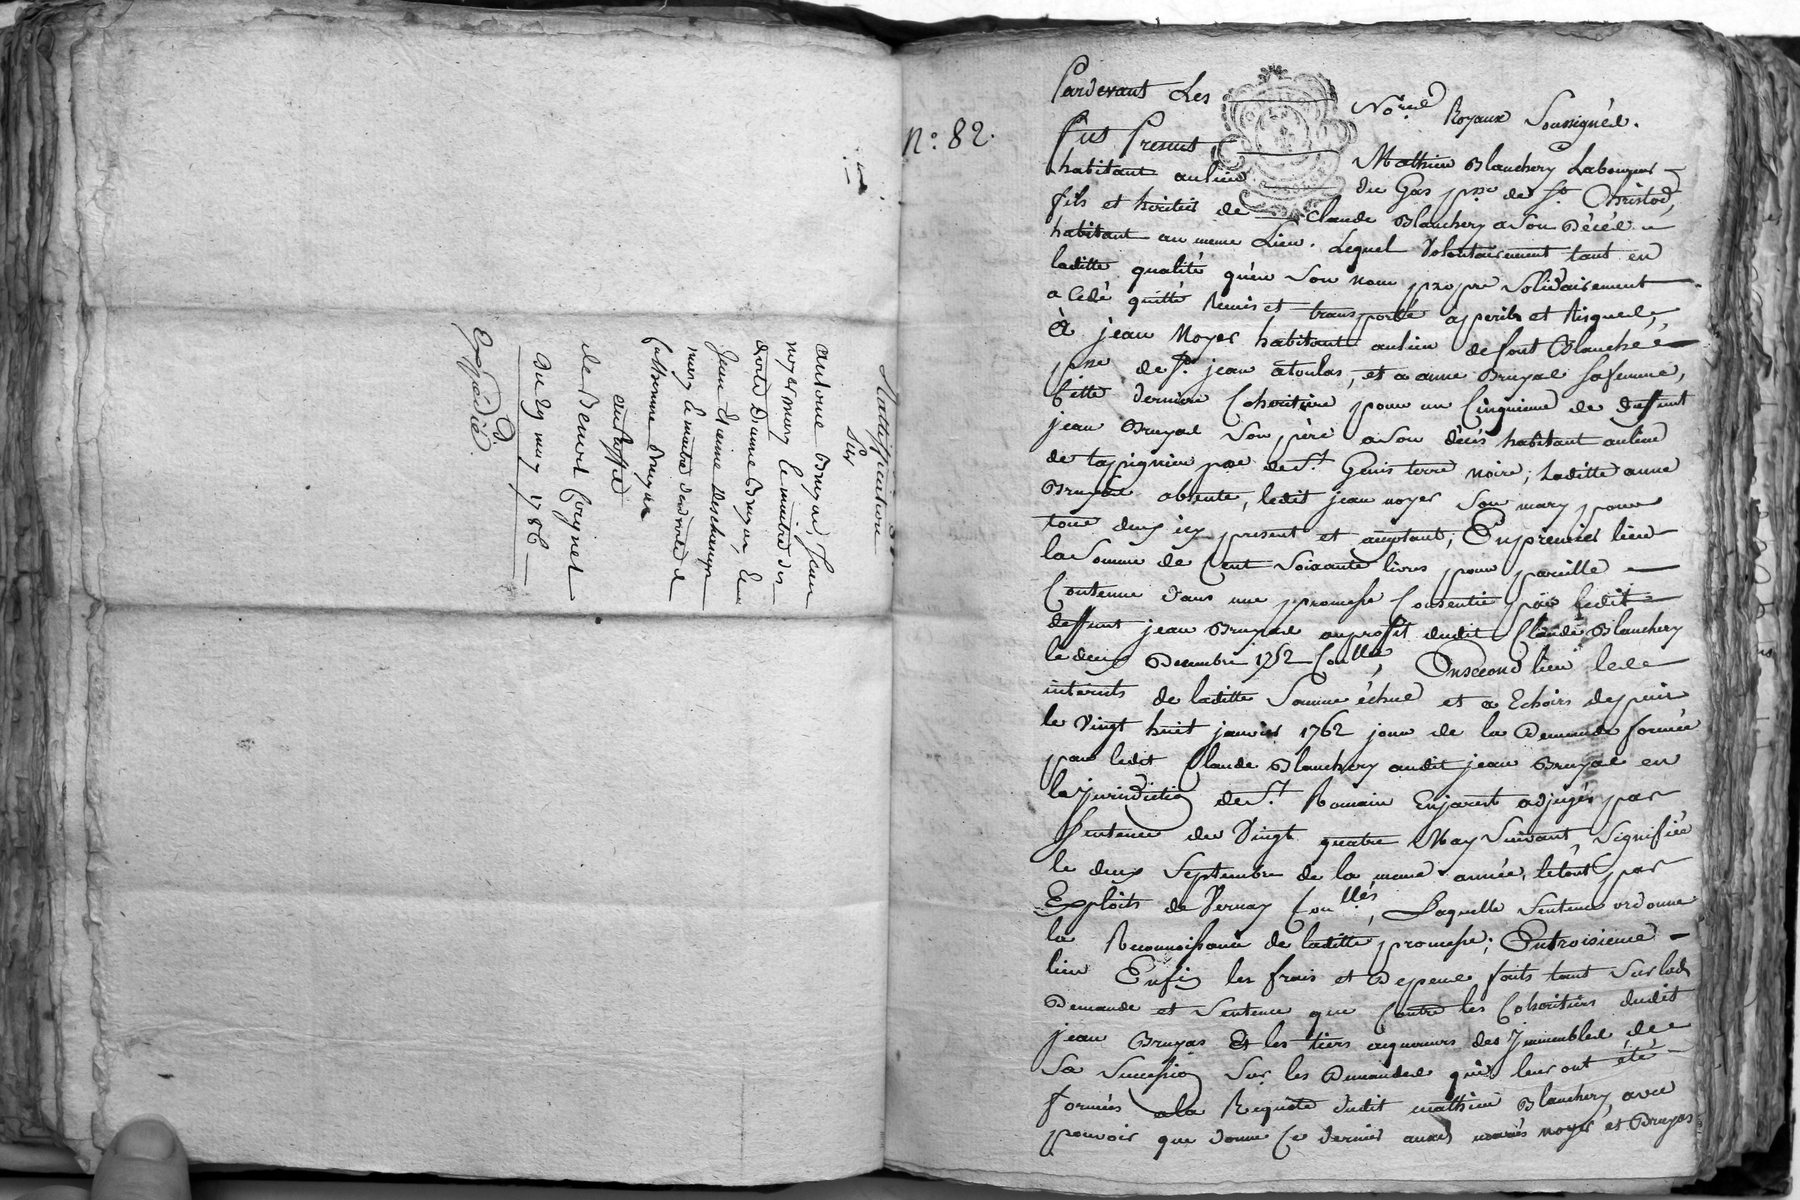 Rattiffication
Sur
antoine Bruyas, Jean
noyer mary le maitre des
droits d'anne Bruyas, et
Jean Etienne Deschamps
mary le maitre des droits de
Catherine Bruyas
en Baptte
Me Benoit Coignet
Du 29 may 1786
Expédié
N.º 82.
Pardevant Les No.res Royaux Soussignés.
fut Présent Mathieu Blanchery Laboureur
habitant au lieu du Gas p.sse de St Christo,
fils et heritier de Claude Blanchery a Son Décés
habitant au meme Lieu. Lequel Volontairement tant en
laditte qualité qu'en Son nom propre Solidairement
a Cedé quitté Remis et transporté a perils et Risques
à jean Noyer habitant au lieu de font Blanche
p.sse de St jean atoulas, et a anne Bruyas sa femme,
Cette derniere Coheritiere pour un Cinquieme de deffunt
jean Bruyas Son père a Son décés habitant au lieu
de tapignieu p.sse de St Genis terre noire; Laditte anne
Bruyas absente, ledit jean noyer Son mary pour
tous deux icy present et acceptant, En premier lieu
la Somme de Cent Soixante livres pour pareille
Contenue dans une promesse Consentie par ledit
deffunt jean Bruyas au profit dudit Claude Blanchery
le deux Decembre 1752 Con.llée, En second lieu les
interets de laditte Somme échus et a Echoir depuis
le Vingt huit janvier 1762 jour de la Demande formée
par ledit Claude Blanchery audit jean Bruyas en
la jurisdiction de St Romain Enjarest adjugés par
Sentence du Vingt quatre May Suivant, Signifiée
le deux Septembre de la meme année, le tout par
Exploits de Vernay Con.llés, Laquelle Sentence ordonne
la Reconnoissance de laditte promesse; En troisieme
lieu Enfin les frais et Depens faits tant Sur lad.
Demande et Sentence que Contre les Coheritiers dudit
jean Bruyas Et les tiers acquereurs des Immeubles de
Sa Succession Sur les Demandes qui leur ont été
formées a la Requête dudit mathieu Blanchery avec
pouvoir que donne Ce dernier auxd mariés noyer et Bruyas